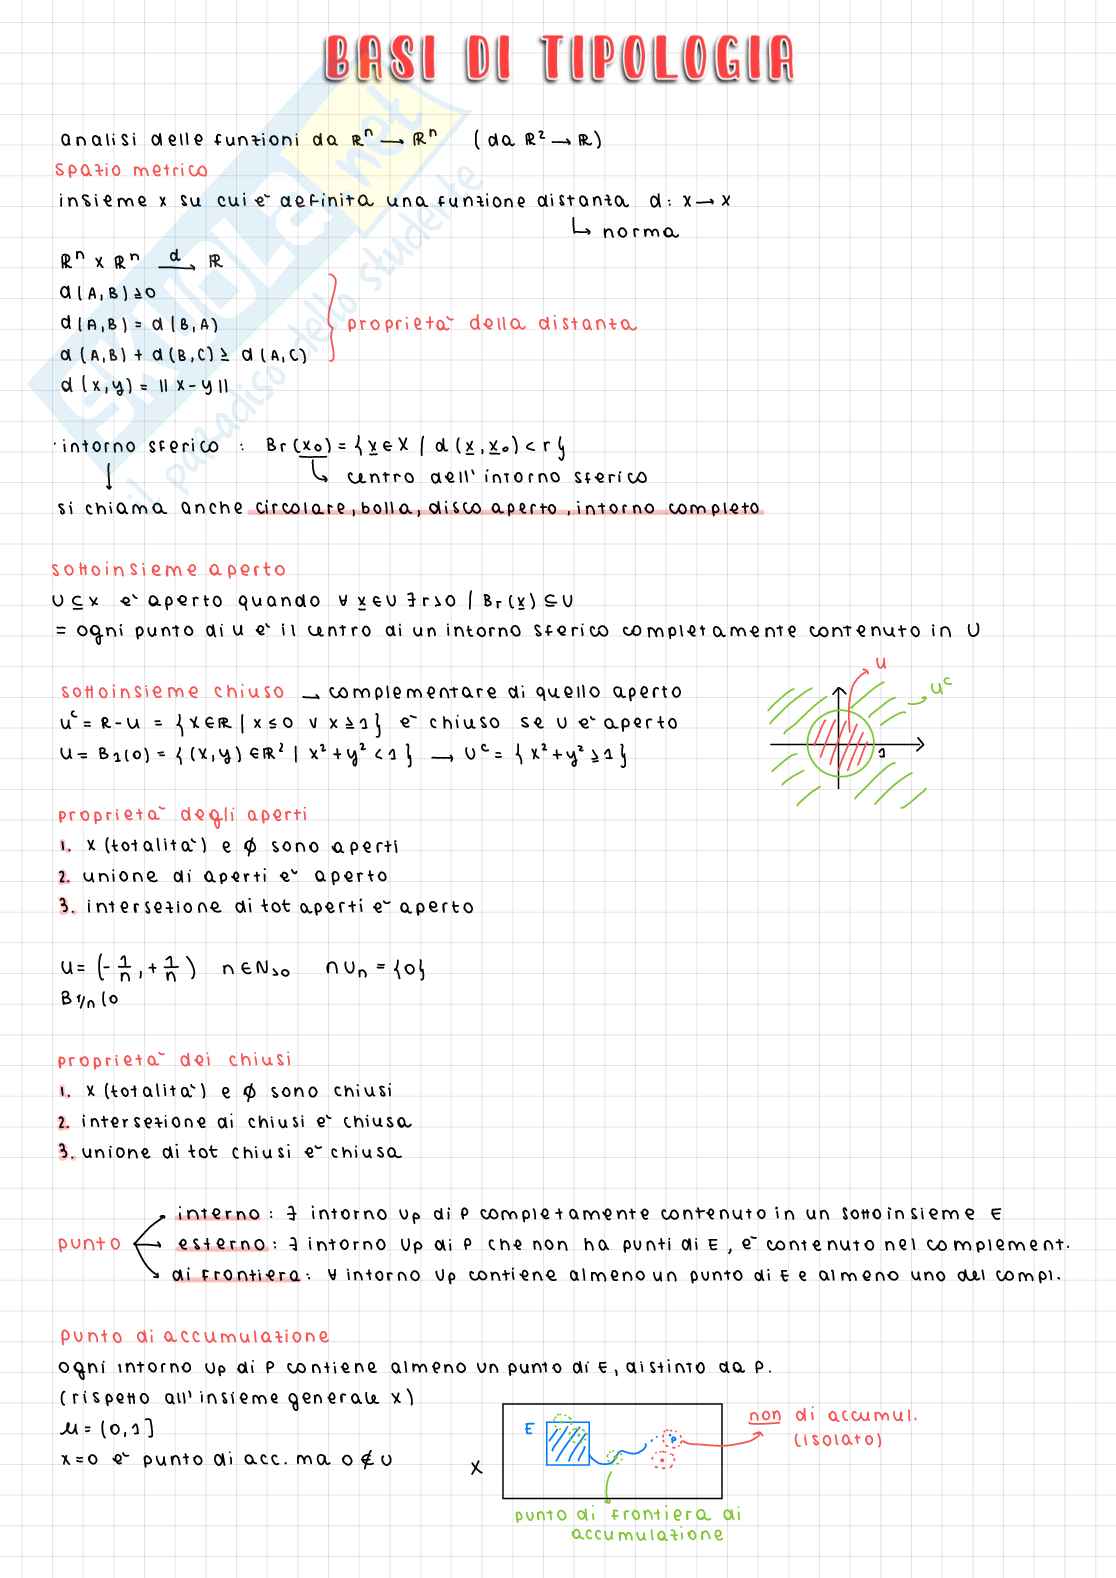 BASI DI TIPOLOGIA
analisi delle funzioni da ℝⁿ → ℝⁿ (da ℝ² → ℝ)
spazio metrico
insieme x su cui è definita una funzione distanza d: x → x
↳ norma
ℝⁿ x ℝⁿ →ᵈ ℝ
d(A,B) ≥ 0
d(A,B) = d(B,A)
proprietà della distanza
d(A,B) + d(B,C) ≥ d(A,C)
d(x,y) = ||x-y||
· intorno sferico : Br(x₀) = {x ∈ X / d(x,x₀) < r}
↳ centro dell'intorno sferico
si chiama anche circolare, bolla, disco aperto, intorno completo
sottoinsieme aperto
U ⊆ x è aperto quando ∀ x ∈ U ∃ r>0 / Br(x) ⊆ U
= ogni punto di U è il centro di un intorno sferico completamente contenuto in U
sottoinsieme chiuso → complementare di quello aperto
Uᶜ = R-U = {X∈ℝ | x ≤ 0 ∨ x ≥ 1} è chiuso se U è aperto
U = B₁(0) = {(x,y) ∈ ℝ² | x²+y² < 1} → Uᶜ = {x²+y² ≥ 1}
U
Uᶜ
1
proprietà degli aperti
1. x (totalità) e ∅ sono aperti
2. unione di aperti è aperto
3. intersezione di tot aperti è aperto
U = (-1/n, +1/n) n ∈ N>0 ∩Un = {0}
B1/n (0
proprietà dei chiusi
1. x (totalità) e ∅ sono chiusi
2. intersezione di chiusi è chiusa
3. unione di tot chiusi è chiusa
punto
interno : ∃ intorno Up di P completamente contenuto in un sottoinsieme E
esterno : ∃ intorno Up di P che non ha punti di E, è contenuto nel complement.
di frontiera : ∀ intorno Up contiene almeno un punto di E e almeno uno del compl.
punto di accumulazione
ogni intorno Up di P contiene almeno un punto di E, distinto da P.
(rispetto all'insieme generale x)
U = (0,1]
x=0 è punto di acc. ma 0 ∉ U
X
E
P
non di accumul.
(isolato)
punto di frontiera di
accumulazione
SKUOLA.net
il paradiso dello studente